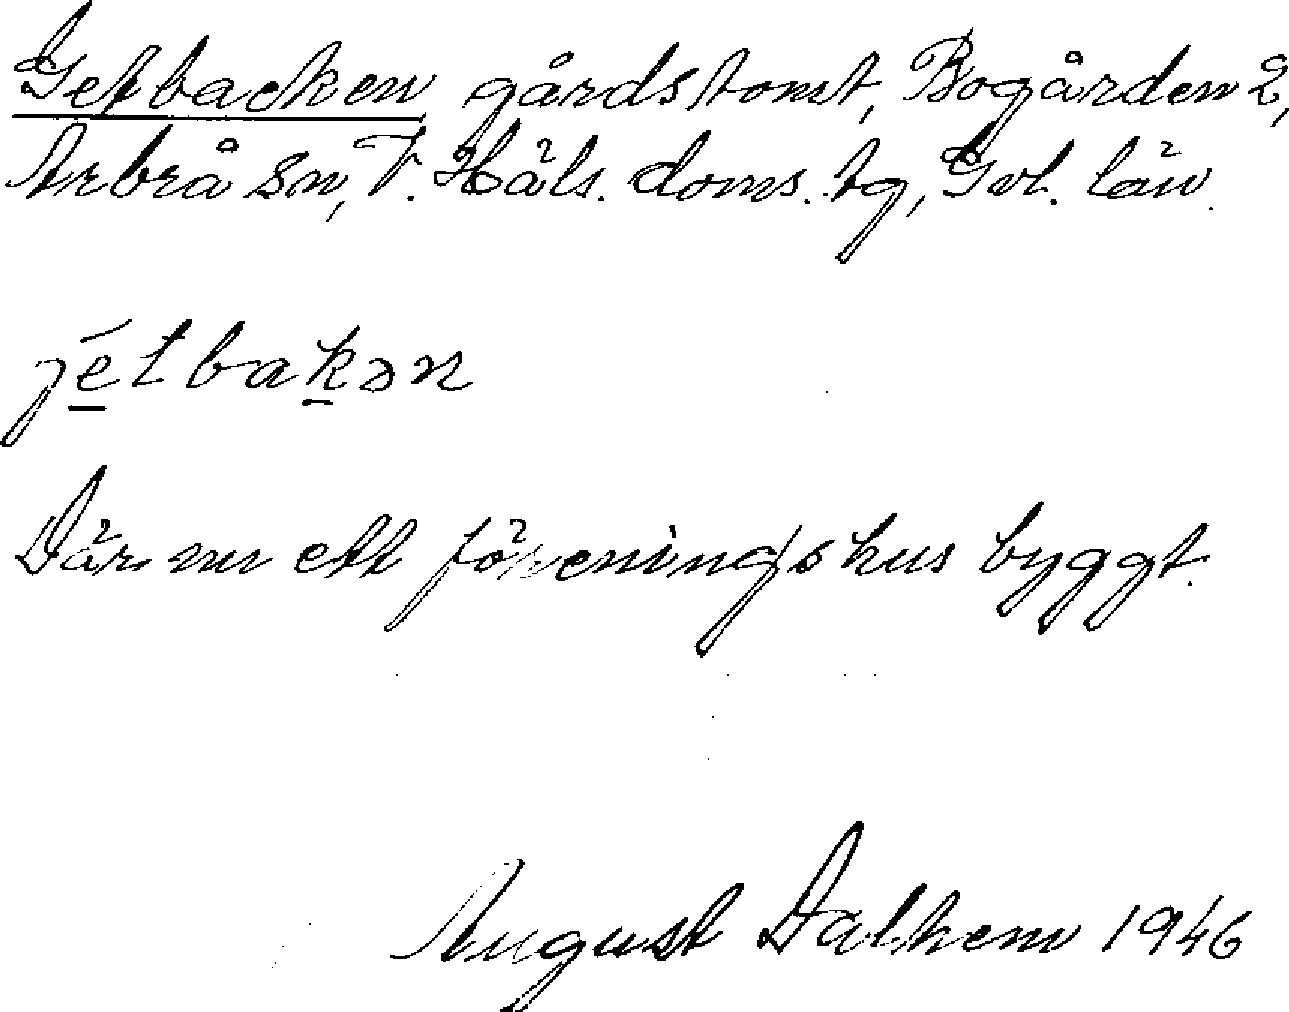 Getbacken gårdstomt, Bogården 2,
Arbrå sn, V. Häls. doms. tg, Gvl. län.
jétbakən
Där nu ett föreningshus byggt.
August Dalhem 1946